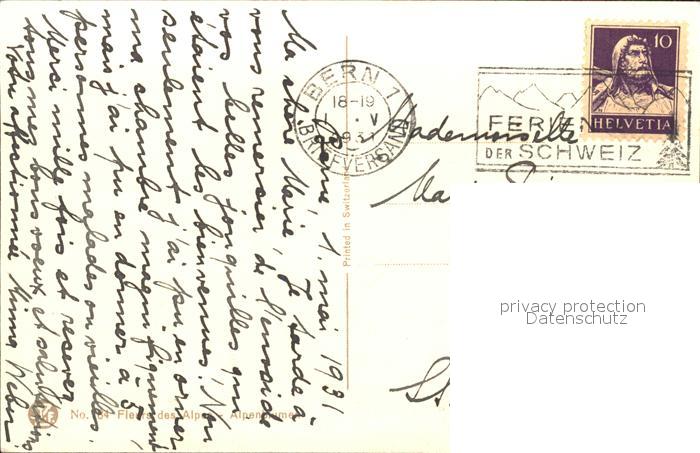 Berne 1. mai 1931
Ma chère Marie, Je tarde à
vous remercier de l'envoi de
vos belles jonquilles qui
étaient les bienvenues. Non
seulement j'ai pu en orner
ma chambre magnifiquement,
mais j'ai pu en donner à 3
personnes malades ou vieilles.
Merci mille fois et recevez
tous mes bons voeux et salutations
Votre affectionnée Minna Weber
No. 64 Fleurs des Alpes - Alpenblumen
Printed in Switzerland
BERN 1
18-19
1. V
1931
BRIEFVERSAND
FERIEN
DER SCHWEIZ
10
HELVETIA
Mademoiselle
privacy protection
Datenschutz
St.